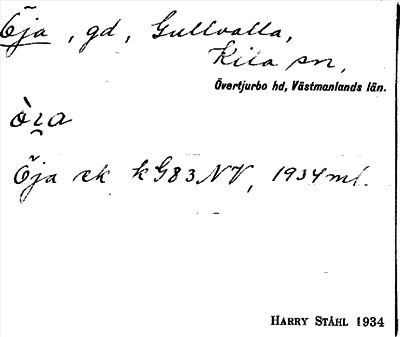 Öja, gd, Gullvalla,
Kila sn,
Övertjurbo hd, Västmanlands län.
Öja ek k G83 NV, 1934 ml.
HARRY STÅHL 1934